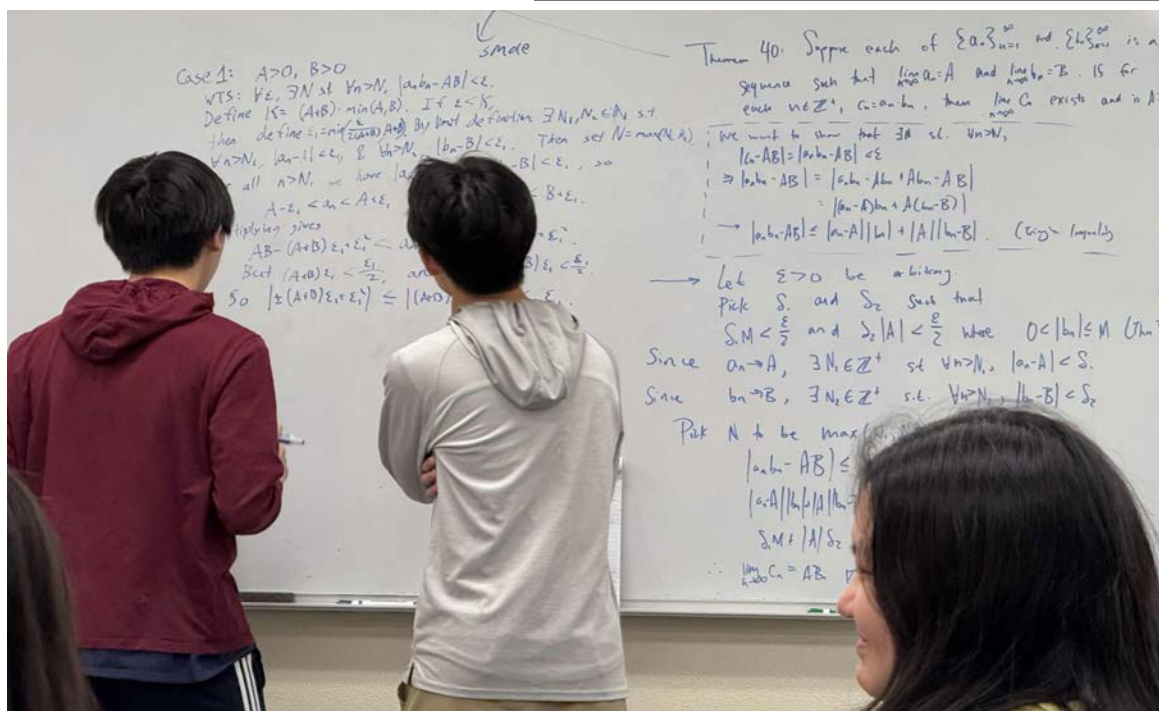 smole
Case 1: A>0, B>0
WTS: ∀ε, ∃N st ∀n>N, |aₙbₙ-AB|<ε.
Define K= (A+B)·min(A,B). If ε<K,
then define ε₁=min( ε/2(A+B), A+B) By limit definition ∃N₁,N₂∈ℕ s.t.
∀n>N₁, |aₙ-A|<ε₁, & ∀n>N₂ |bₙ-B|<ε₁. Then set N=max(N₁,N₂).
all n>N, we have |aₙ -B|<ε₁, so
A-ε₁<aₙ<A+ε₁ B+ε₁.
gives
AB-(A+B)ε₁+ε₁²<
But (A+B)ε₁<ε₁/2, )ε₁<ε₁/2.
So |±(A+B)ε₁+ε₁²| ≤ |(A+B) ε₁.
Theorem 40: Suppose each of {aₙ}ₙ₌₁^∞ and {bₙ}ₙ₌₁^∞ is a
sequence such that lim aₙ=A and lim bₙ=B. If for
each n∈ℤ⁺, cₙ=aₙ·bₙ, then lim cₙ exists and is A
We want to show that ∃N s.t. ∀n>N,
|cₙ-AB|=|aₙbₙ-AB|<ε
⇒ |aₙbₙ-AB| = |aₙbₙ-Abₙ+Abₙ-AB|
= |(aₙ-A)bₙ+A(bₙ-B)|
→ |aₙbₙ-AB| ≤ |aₙ-A||bₙ|+|A||bₙ-B|. (Triangle Inequality
→ Let ε>0 be arbitrary.
Pick δ₁ and δ₂ such that
δ₁M<ε/2 and δ₂|A|<ε/2 where 0<|bₙ|≤M (Thm
Since aₙ→A, ∃N₁∈ℤ⁺ st ∀n>N₁, |aₙ-A|<δ₁
Since bₙ→B, ∃N₂∈ℤ⁺ s.t. ∀n>N₂, |bₙ-B|<δ₂
Pick N to be max(N₁, N
|aₙbₙ-AB| ≤
|aₙ-A||bₙ|+|A||bₙ-
δ₁M+|A|δ₂
∴ lim cₙ = AB